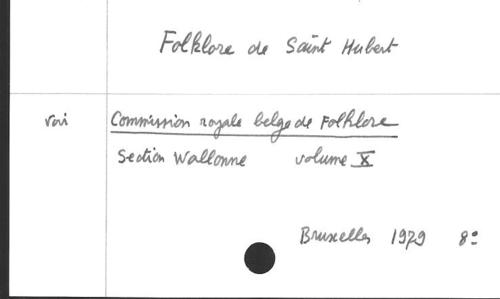 Folklore de Saint Hubert
voir Commission royale belge de Folklore
Section Wallonne volume X
Bruxelles 1979 8°